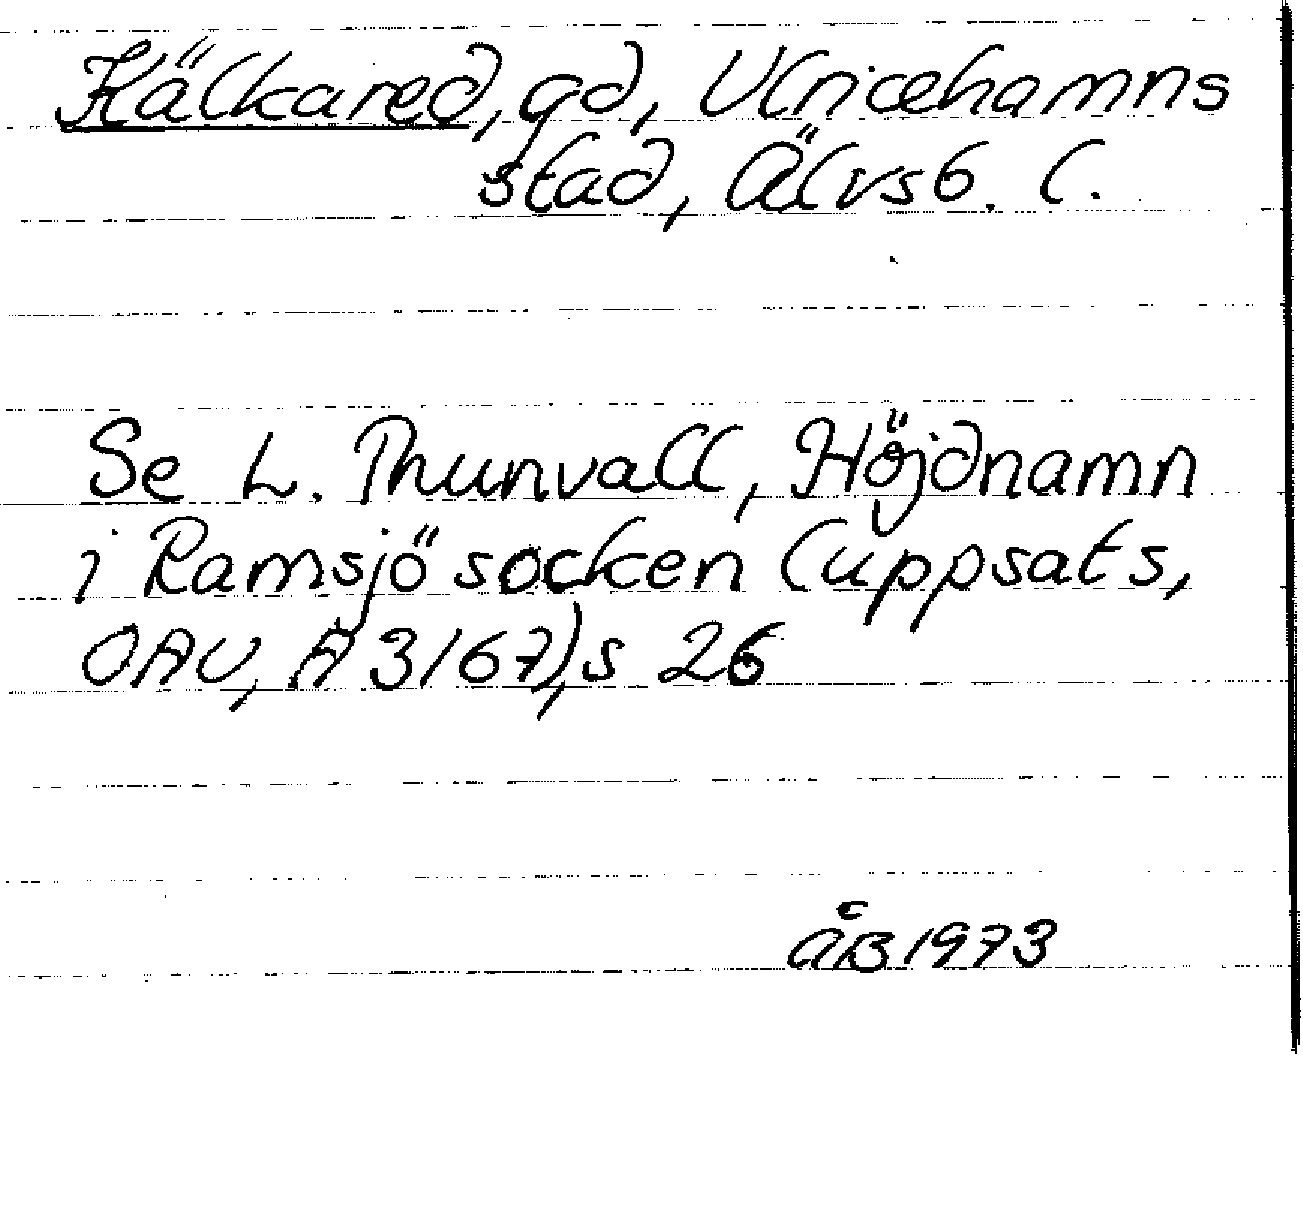 Kälkared, gd, Ulricehamns
stad, Älvsb. l.
Se L. Thunvall, Höjdnamn
i Ramsjö socken (uppsats,
OAU, Ä 3167), s 26
ÅB 1973